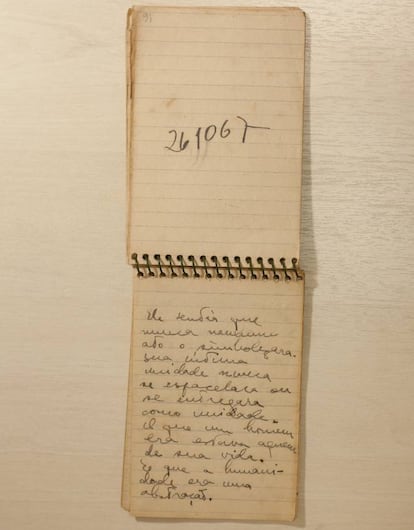 91
261067
Ele sentia que
nunca nenhum
ato o simbolizara.
Sua íntima
unidade nunca
se espacelara ou
se entregara
como unidade.
O que um homem
era estava aquém
de sua vida.
É que a humani-
dade era uma
abstração.